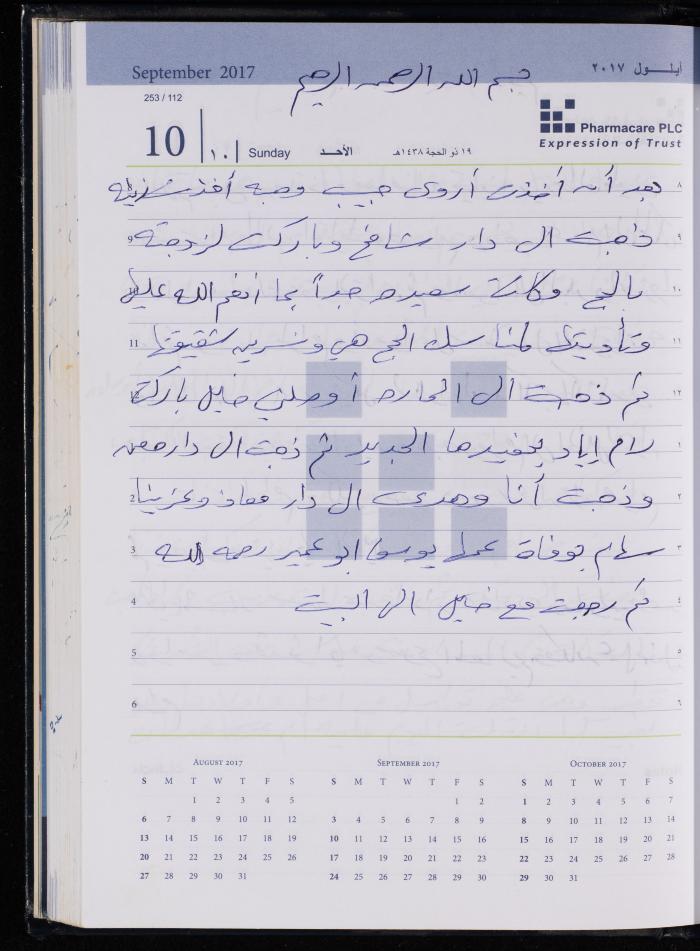 September 2017 بسم الله الرحمن الرحيم أيلـــول ٢٠١٧
253 / 112
10 ١٠ Sunday الأحــد ١٩ ذو الحجة ١٤٣٨هـ
Pharmacare PLC
Expression of Trust
٨ بعد أن أخذت أروى حبيب وصبه أخذ
9 ذهبت ال دار شافخ وباركت لزوجته ٩
10 بالحج وكانت سعيده جداً بما أنعم الله عليها ١٠
11 وتأديتها لمناسك الحج هي ونسرين شقيقتها ١١
12 ثم ذهبت ال الحاره أوصلني خليل باركت ١٢
لام إياد بحفيدها الجديد ثم ذهبت ال دار ١
2 وذهبت أنا وهدى ال دار معاذ وعزينا ٢
3 سهام بوفاة عمها يوسف ابو عمير رحمه الله ٣
4 ثم رجعت مع خليل الى البيت ٤
5 ٥
6 ٦
August 2017
S M T W T F S
1 2 3 4 5
6 7 8 9 10 11 12
13 14 15 16 17 18 19
20 21 22 23 24 25 26
27 28 29 30 31
September 2017
S M T W T F S
1 2
3 4 5 6 7 8 9
10 11 12 13 14 15 16
17 18 19 20 21 22 23
24 25 26 27 28 29 30
October 2017
S M T W T F S
1 2 3 4 5 6 7
8 9 10 11 12 13 14
15 16 17 18 19 20 21
22 23 24 25 26 27 28
29 30 31